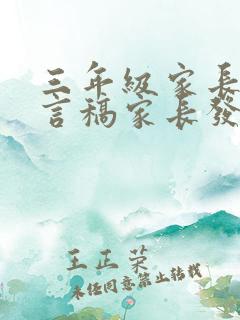 三年级家长
言稿家长發
王正荣
未经同意禁止转载